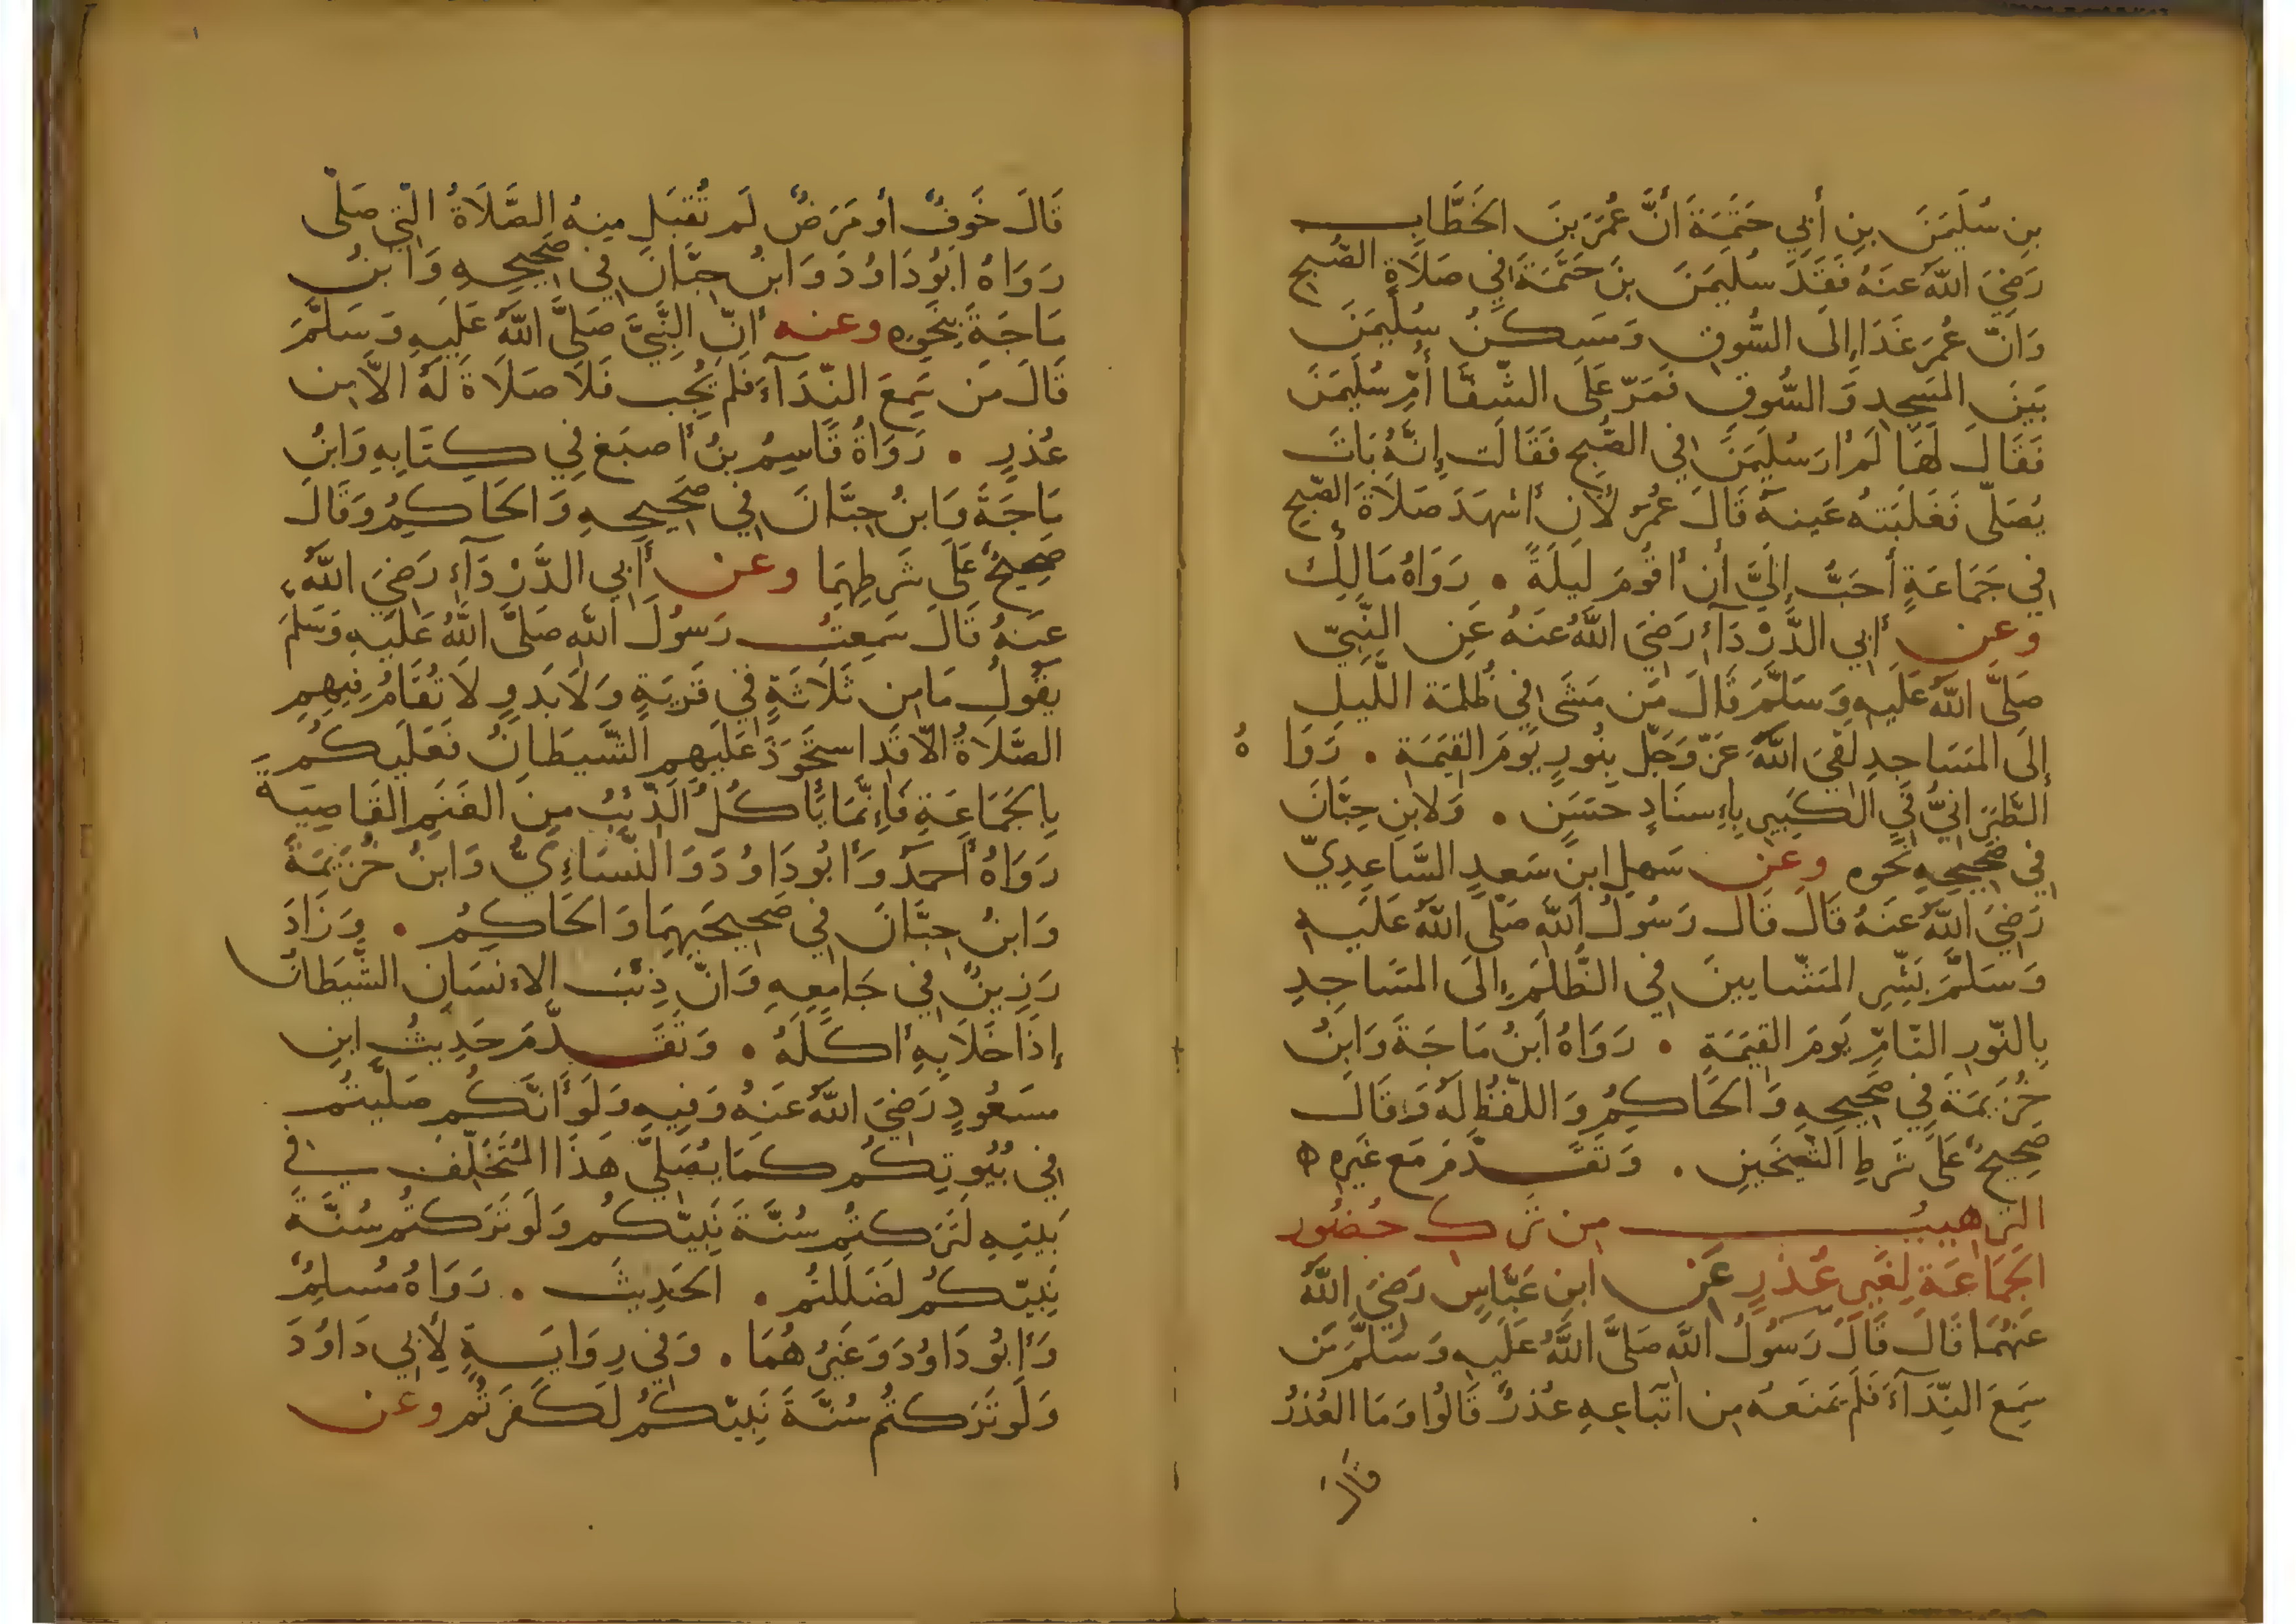 بنِ سُلَيمَنَ بنِ أَبِي حَثمَةَ أَنَّ عُمَرَ بنَ الخَطَّابِ
رَضِيَ اللَّهُ عَنهُ فَقَدَ سُلَيمَنَ بنَ حَثمَةَ فِي صَلَاةِ الصُّبحِ
وَانّ عُمَرَ غَدَا إِلَى السُّوقِ وَمَسكَنُ سُلَيمَنَ
بَينَ المَسجِدِ وَالسُّوقِ فَمَرّ عَلَى الشِّفَا أُمِّ سُلَيمَنَ
فَقَالَ لَهَا لَم أَرَ سُلَيمَنَ فِي الصُّبحِ فَقَالَت إِنَّهُ بَاتَ
يُصَلّي فَغَلَبَتهُ عَينهُ قَالَ عُمَرُ لأَن أَشهَدَ صَلَاةَ الصّبحِ
فِي جَمَاعَةٍ أَحَبُّ إِلَيَّ أَن أَقُومَ لَيلَةً . رَوَاهُ مَالِكٌ
وعن أَبي الدَّرْدَآءِ رَضِيَ اللَّهُ عَنهُ عَنِ النَّبِيّ
صَلَّى اللَّهُ عَلَيهِ وَسَلَّمَ قَالَ مَن مَشَى فِي ظُلمَة اللَّيلِ
إِلَى المَسَاجِدِ لَقيَ اللَّهَ عَزّ وَجَلّ بِنُورٍ يَومَ القِيَمَةِ . رَوَاهُ
الطَّبَرَانِيُّ فِي الكَبِيرِ بِإِسنَادٍ حَسَنٍ . وَلابنِ حِبَّانَ
فِي صَحِيحِهِ نَحوه وعن سَهلِ ابنِ سَعدٍ السَّاعِدِيّ
رَضِيَ اللَّهُ عَنهُ قَالَ قَالَ رَسُولُ اللَّهِ صَلَّى اللَّهُ عَلَيهِ
وَسَلَّمَ بَشِّرِ المَشّايينَ فِي الظُّلَمِ إِلَى المَسَاجِدِ
بِالنّورِ التّامِّ يَومَ القِيَمَةِ . رَوَاهُ ابنُ مَاجَةَ وَابنُ
خُزَيمَةَ فِي صَحِيحِهِ وَالحَاكِمُ وَاللّفظُ لَهُ وَقَالَ
صَحِيحٌ عَلَى شَرطِ الشّيخَينِ . وَتَقَدَّمَ مَع غَيرِه ه
الترهيبُ مِن تَركِ حُضُورِ
الجَمَاعَةِ لِغَيرِ عُذرٍ عَن ابنِ عَبَّاسٍ رَضِيَ اللَّهُ
عَنهُمَا قَالَ قَالَ رَسُولُ اللَّهِ صَلَّى اللَّهُ عَلَيهِ وَسَلَّمَ مَن
سَمِعَ النِّدَآءَ فَلَم يَمنَعهُ مِن اتّبَاعِهِ عُذرٌ قَالُوا وَمَا العُذرُ
قَالَ
قَالَ خَوفٌ أَو مَرَضٌ لَم تُقبَل مِنهُ الصَّلَاةُ الّتِي صَلّى
رَوَاهُ أَبُو دَاوُدَ وَابنُ حِبَّانَ فِي صَحِيحِهِ وَابنُ
مَاجَةَ بِنَحوِهِ وعنه أَنّ النَّبِيَّ صَلَّى اللَّهُ عَلَيهِ وَسَلَّمَ
قَالَ مَن سَمِعَ النِّدَآءَ فَلَم يُجِب فَلَا صَلَاةَ لَهُ الاَّ مِن
عُذرٍ . رَوَاهُ قَاسِمُ بنُ أَصبَغ فِي كِتَابِهِ وَابنُ
مَاجَةَ وَابنُ حِبَّانَ فِي صَحِيحِهِ وَالحَاكِمُ وَقَالَ
صَحِيحٌ عَلَى شَرطِهِمَا وعن أَبِي الدَّرْدَآءِ رَضِيَ اللَّهُ
عَنهُ قَالَ سَمِعتُ رَسُولَ اللَّهِ صَلَّى اللَّهُ عَلَيهِ وَسَلَّمَ
يَقُولُ مَا مِن ثَلَاثَةٍ فِي قَريَةٍ وَلَا بَدوٍ لَا تُقَامُ فِيهِمِ
الصَّلَاةُ الاّ قَدِ استَحوَذَ عَلَيهِمِ الشَّيطَانُ فَعَلَيكُم
بِالجَمَاعَةِ فَإِنَّمَا يَأكُلُ الذِّئبُ مِنَ الغَنَمِ القَاصِيَةَ
رَوَاهُ أَحمَدُ وَأَبُو دَاوُدَ وَالنَّسَاءِيُّ وَابنُ خُزَيمَةَ
وَابنُ حِبَّانَ فِي صَحِيحَيهِمَا وَالحَاكِمُ . وَزَادَ
رَزِينٌ فِي جَامِعِهِ وَانّ ذِئبَ الإِنسَانِ الشَّيطَانُ
إِذَا خَلَا بِهِ أَكَلَهُ . وَتَقَدَّمَ حَدِيثُ ابنِ
مسعُودٍ رَضِيَ اللَّهُ عَنهُ وَفِيهِ وَلَو أَنَّكُم صَلَّيتُم
فِي بُيُوتِكُم كَمَا يُصَلِّي هَذَا المُتَخَلِّف فِي
بَيتِهِ لَتَركتُم سُنَّةَ نَبِيّكُم وَلَو تَرَكتُم سُنَّةَ
نَبِيّكُم لَضَلَلتُم . الحَدِيثَ . رَوَاهُ مُسلِمٌ
وَأَبُو دَاوُدَ وَغَيرُهُمَا . وَفِي رِوَايَةٍ لِأَبِي دَاوُدَ
وَلَو تَرَكتُم سُنَّةَ نَبِيّكُم لَكَفَرتُم وعن